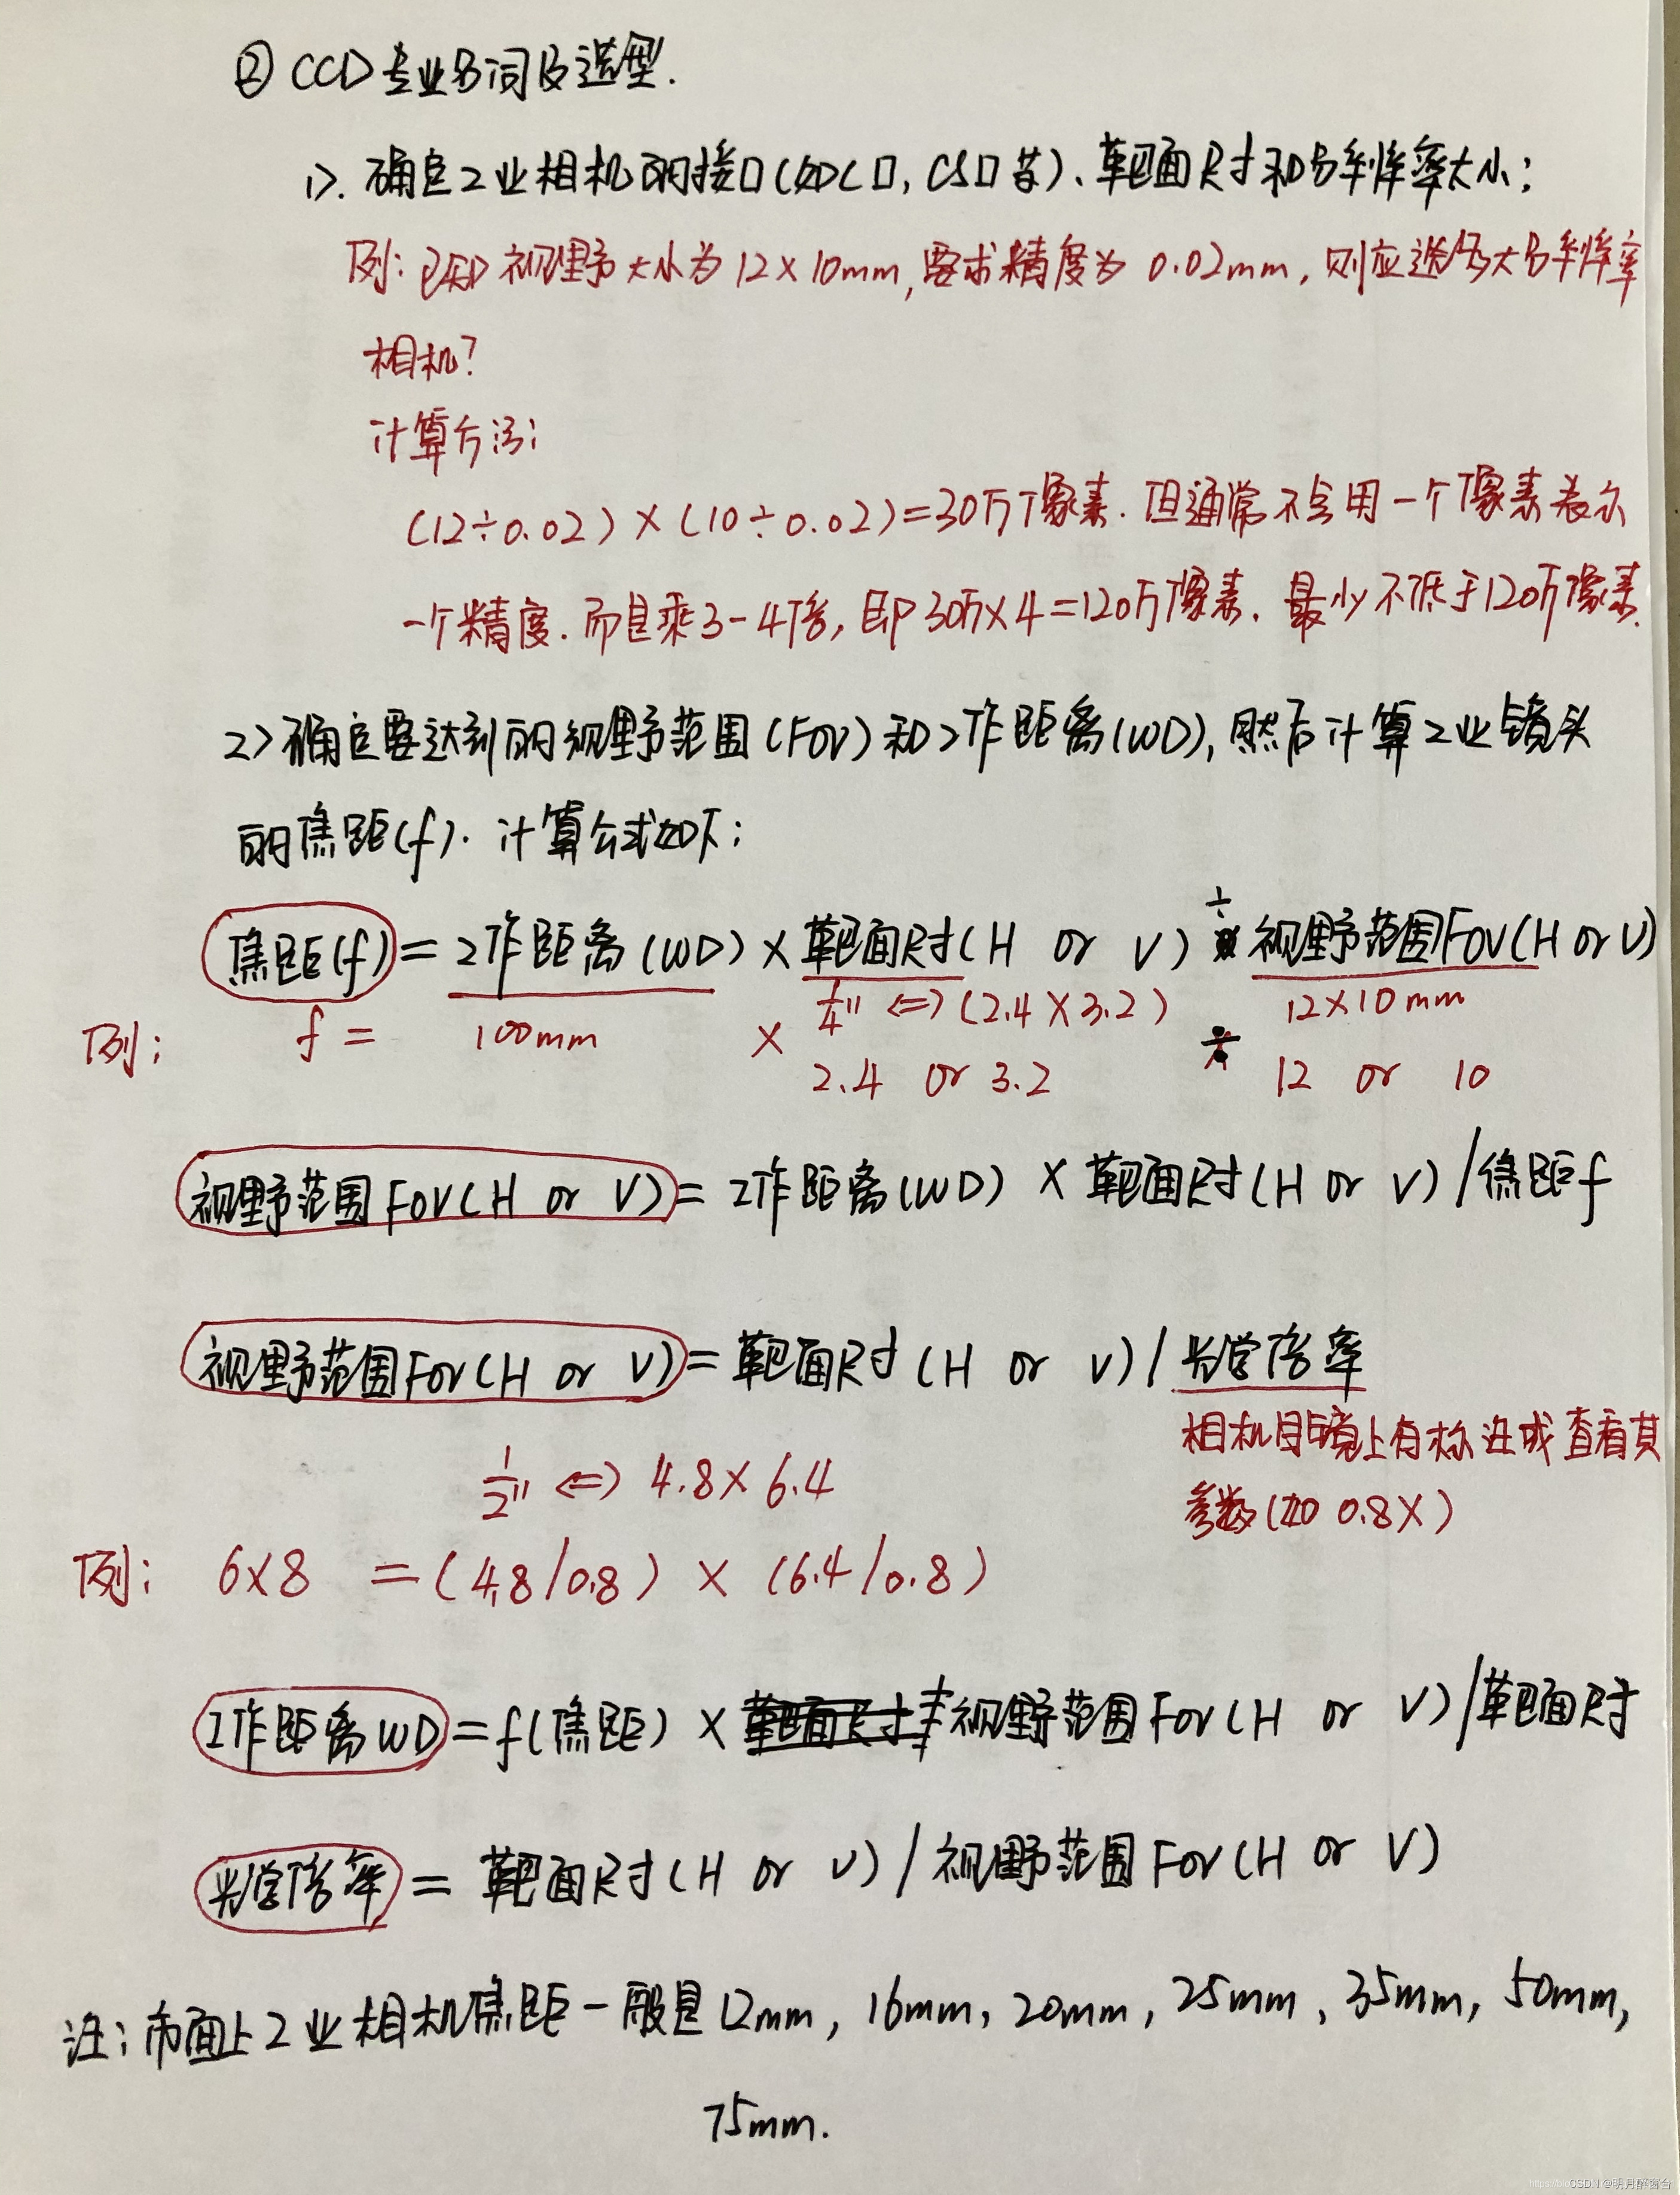 ② CCD专业名词及选型.
1>. 确定工业相机的接口(如C口, CS口等)、靶面尺寸和分辨率大小;
例: 已知视野大小为12×10mm, 要求精度为0.02mm, 则应选多大分辨率
相机?
计算方法:
(12÷0.02)×(10÷0.02)=30万像素. 但通常不会用一个像素表示
一个精度. 而是乘3-4倍, 即30万×4=120万像素. 最少不低于120万像素.
2>确定要达到的视野范围(FOV)和工作距离(WD), 然后计算工业镜头
的焦距(f). 计算公式如下:
焦距(f)=工作距离(WD)×靶面尺寸(H or V)÷视野范围FOV(H or V)
1/4" <=> (2.4×3.2) 12×10mm
例: f = 100mm × 2.4 or 3.2 ÷ 12 or 10
视野范围FOV(H or V)=工作距离(WD) × 靶面尺寸(H or V)/焦距f
视野范围FOV(H or V)=靶面尺寸(H or V)/光学倍率
相机目镜上有标注或查看其
参数(如0.8X)
1/2" <=> 4.8×6.4
例: 6×8 =(4.8/0.8) × (6.4/0.8)
工作距离WD=f(焦距)×视野范围FOV(H or V)/靶面尺寸
光学倍率= 靶面尺寸(H or V)/视野范围FOV(H or V)
注: 市面上工业相机焦距一般是12mm, 16mm, 20mm, 25mm, 35mm, 50mm,
75mm.
CSDN @明月醉窗台